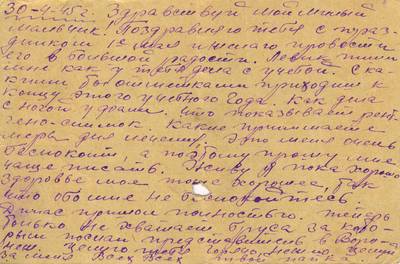 30-4-45 г. Здравствуй мой милый
мальчик. Поздравляю тебя с праз-
дником 1е мая и желаю провести
его в большой радости. пиши
как у тебя дела с учебой. С ка-
кими отметками приходим к
концу этого учебного года. Как дела
с ногой у мамы. что показывает рент-
гено-снимок. Какие принимаете
меры для лечению. Это меня очень
беспокоит, а поэтому прошу мне
чаще писать. Живу я пока хорошо
здоровье мое тоже хорошее, так
что обо мне не беспокойтесь.
полностью. теперь
только не хватает груза за кото-
рым послан представитель в Воро-
неж. Целую тебя
за меня Всех Всех твой папка